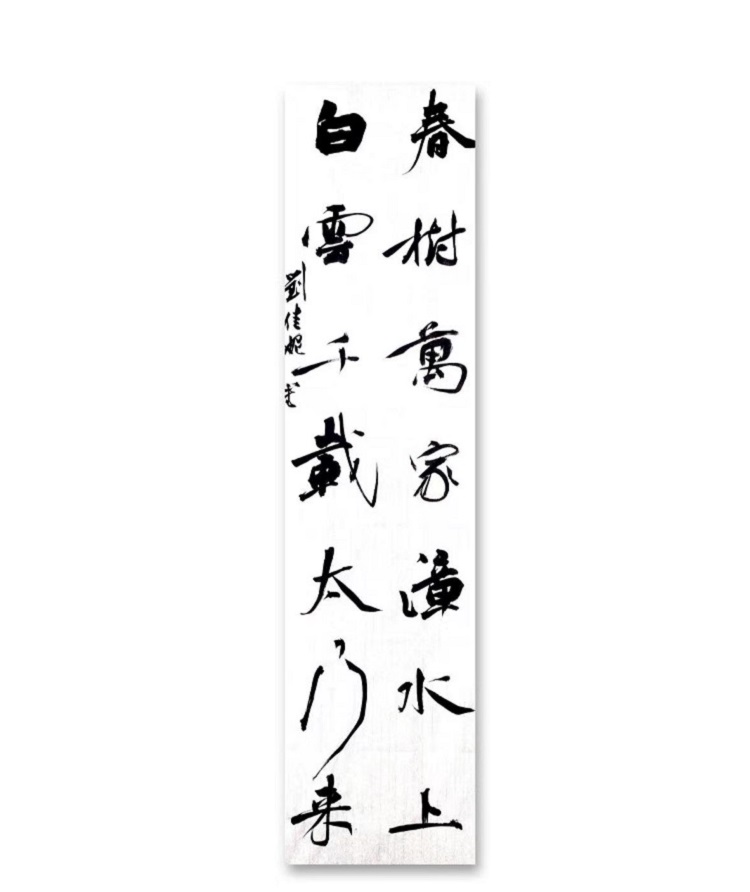 春樹萬家漳水上
白雲千載太行来
劉佳妮書